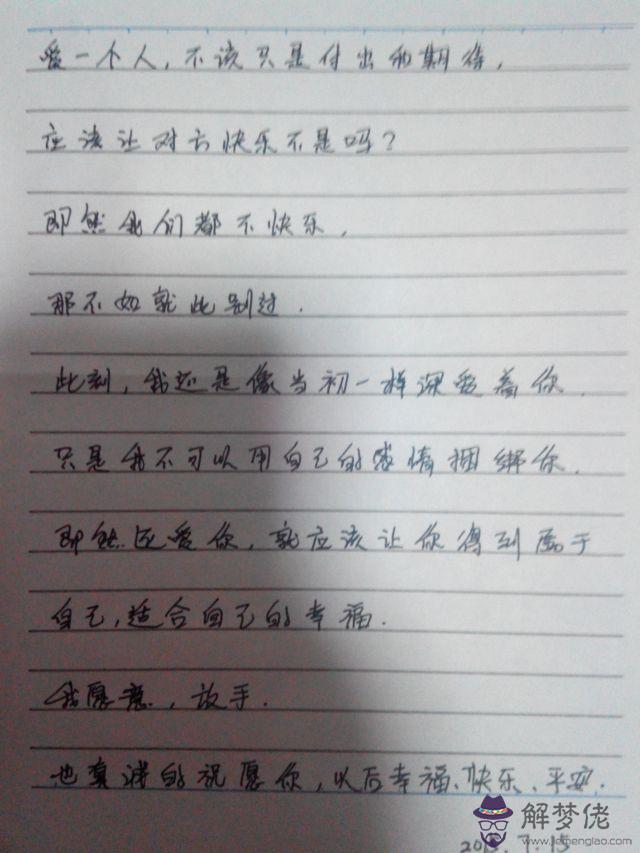 爱一个人，不该只是付出和期待，
应该让对方快乐不是吗？
即然我们都不快乐，
那不如就此别过．
此刻，我还是像当初一样深爱着你．
只是我不可以用自己的感情捆绑你．
即然还爱你，就应该让你得到属于
自己，适合自己的幸福．
我愿意，放手．
也真诚的祝愿你，以后幸福、快乐、平安．
解梦佬
www.jiemenglao.com
7.15